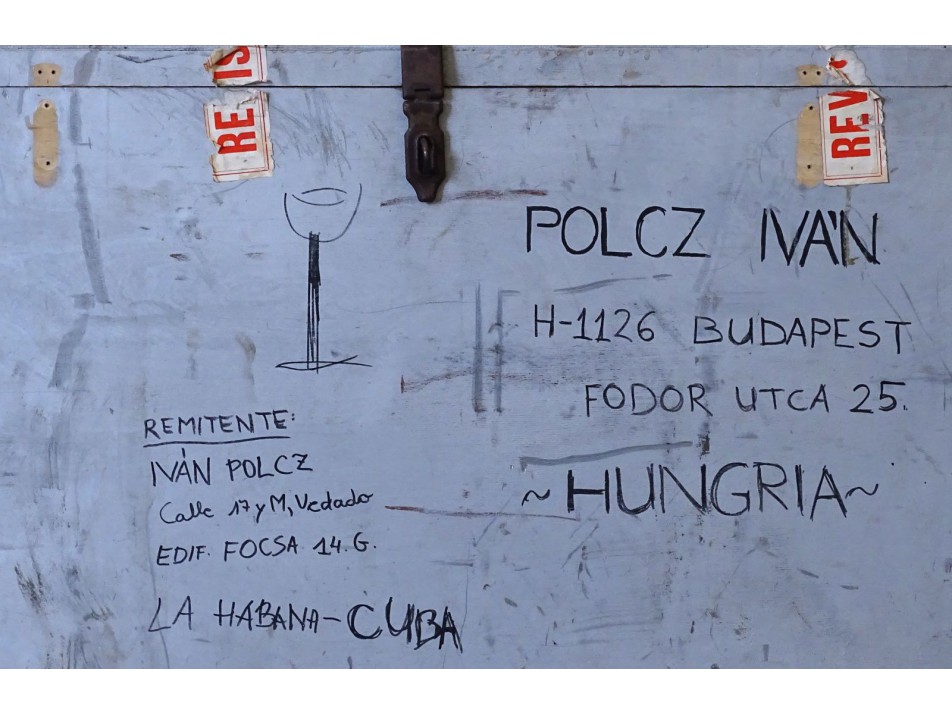 REVIS
REV
POLCZ IVÁN
H-1126 BUDAPEST
FODOR UTCA 25.
~HUNGRIA~
REMITENTE:
IVÁN POLCZ
Calle 17 y M, Vedado
EDIF. FOCSA 14. G.
LA HABANA-CUBA